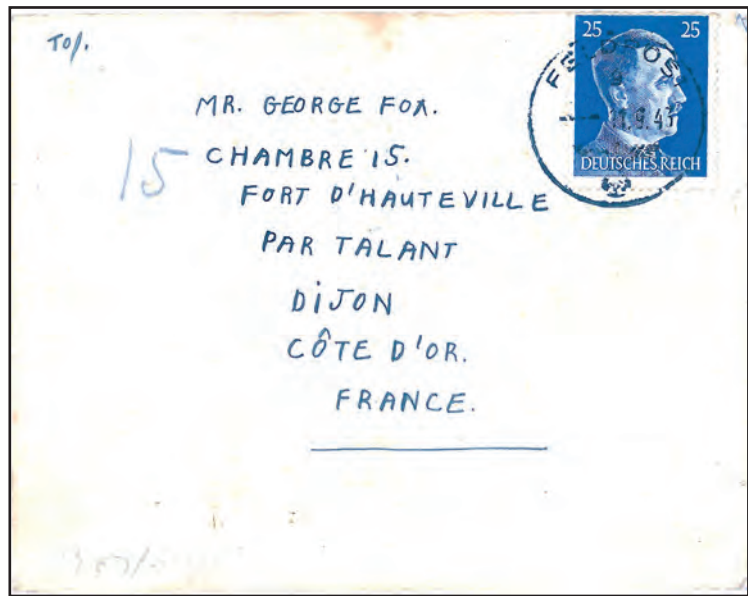 TO/.
25 25
FELDPOS
1.9.43
DEUTSCHES REICH
MR. GEORGE FOX.
15
CHAMBRE 15.
FORT D'HAUTEVILLE
PAR TALANT
DIJON
CÔTE D'OR.
FRANCE.